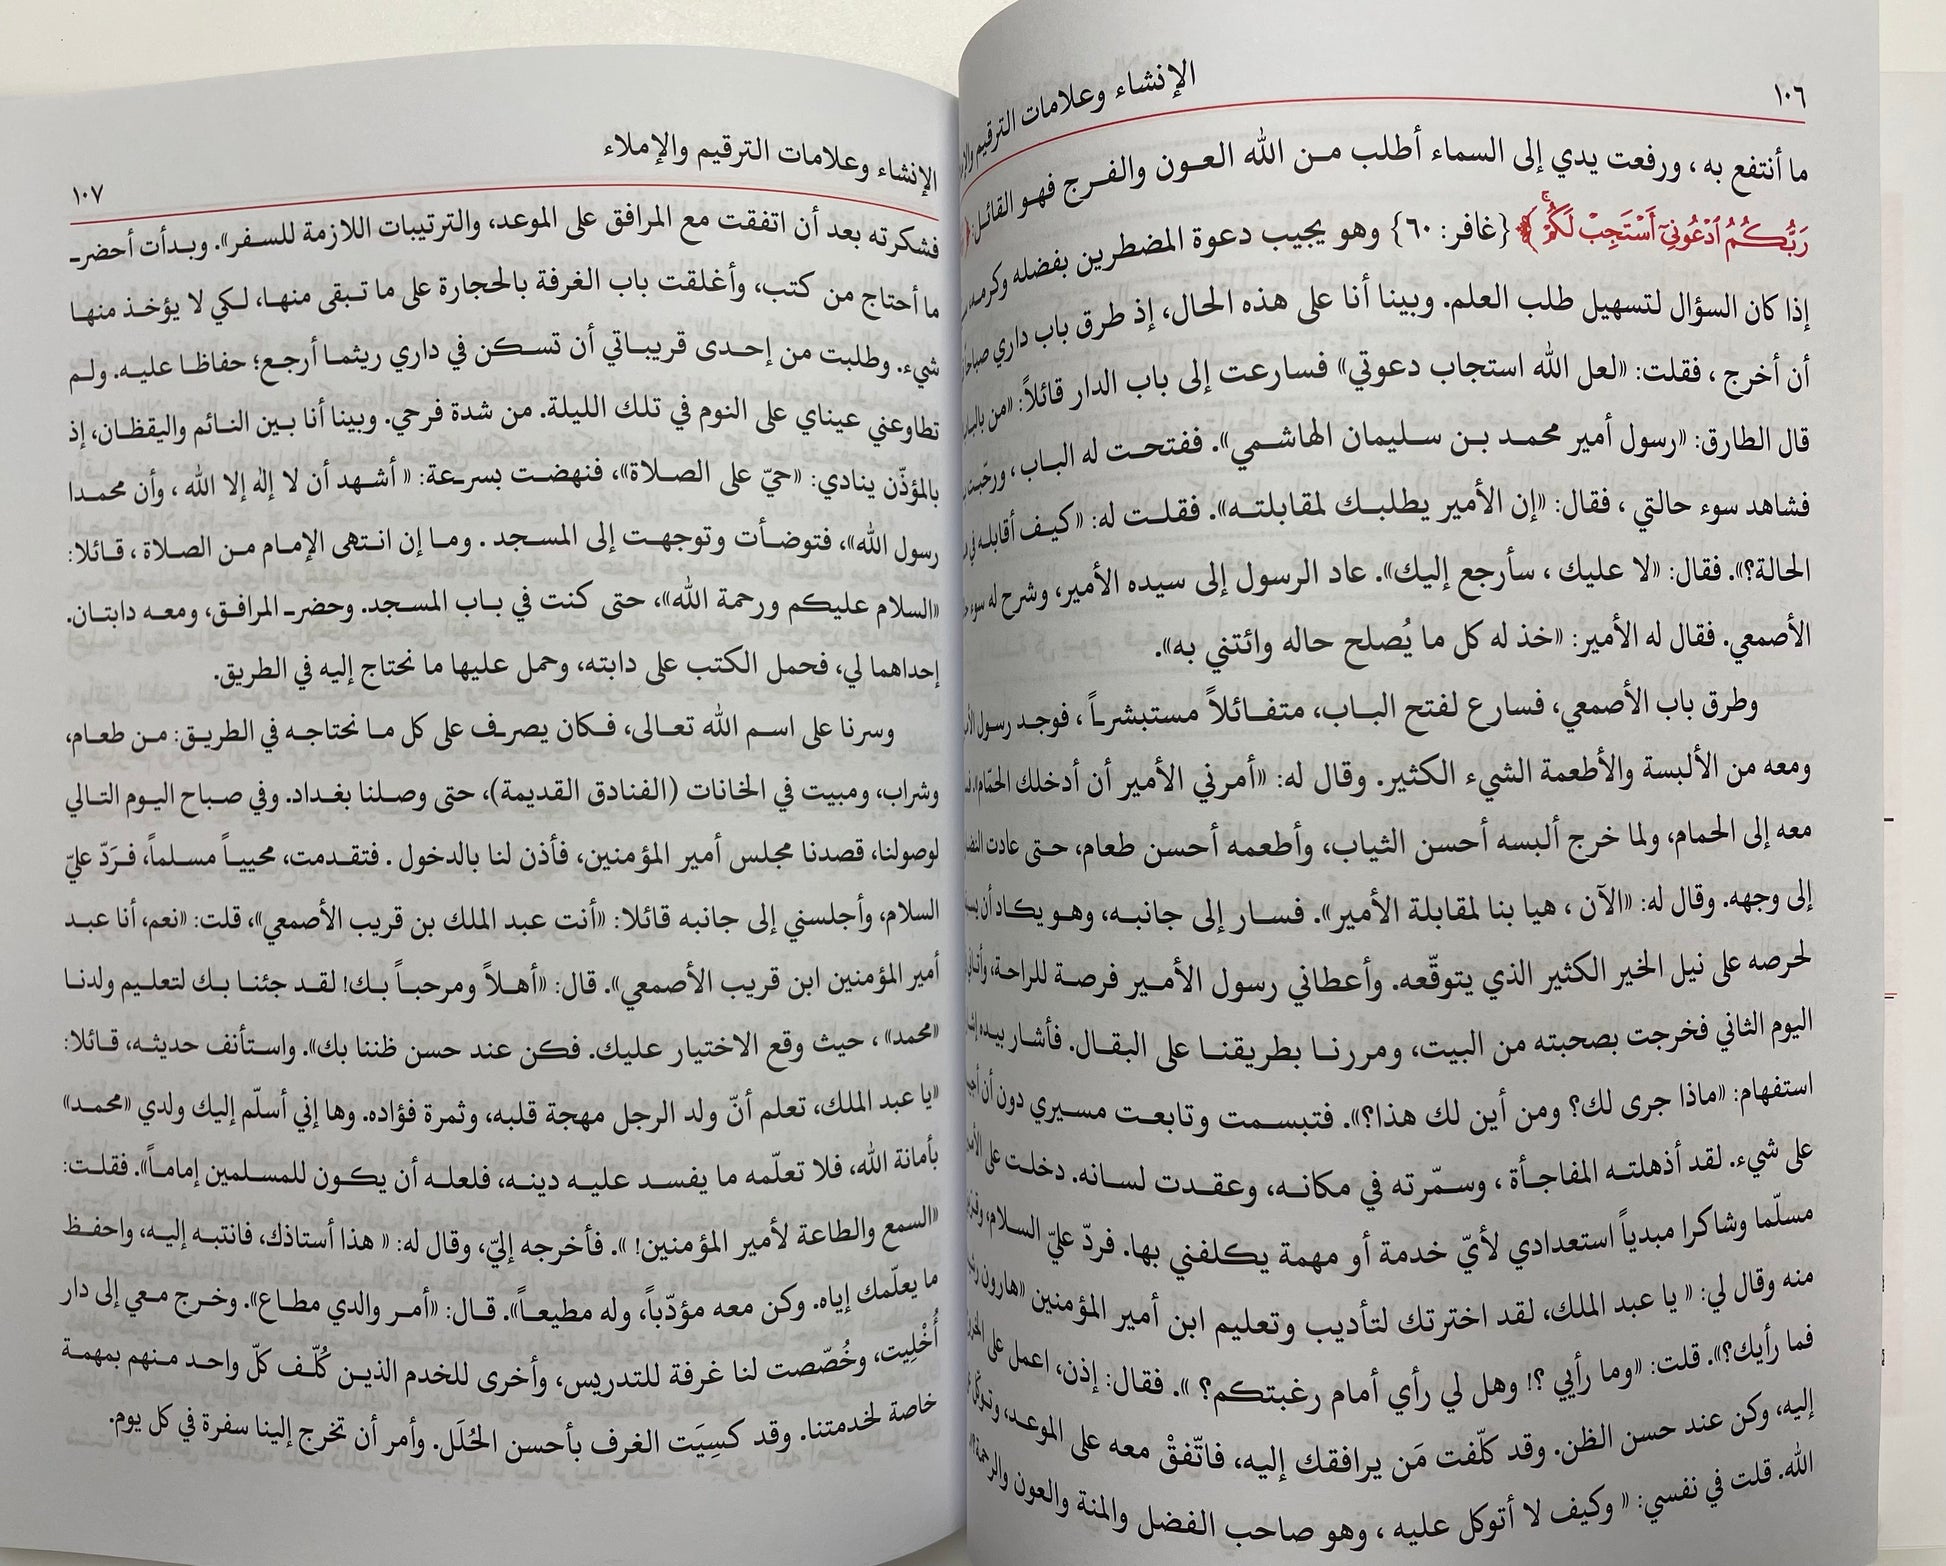 ١٠٦
الإنشاء وعلامات الترقيم
ما أنتفع به ، ورفعت يدي إلى السماء أطلب مـن الله العـون والفـرج فهـو القائـل:
رَبُّكُمُ ٱدْعُونِيٓ أَسْتَجِبْ لَكُمْ ﴾ {غافر: ٦٠} وهو يجيب دعوة المضطرين بفضله وكرمه
إذا كان السؤال لتسهيل طلب العلم. وبينا أنا على هذه الحال، إذ طرق باب داري صباحاً
أن أخرج ، فقلت: «لعل الله استجاب دعوتي» فسارعت إلى باب الدار قائلاً: «من بالباب
قال الطارق: «رسول أمير محمـد بـن سـليمان الهاشـمي». ففتحـت له البـاب ، ورحّبت
فشاهد سوء حالتي ، فقال: «إن الأمير يطلبـك لمقابلتـه». فقلـت له: «كيـف أقابلـه في
الحالة؟». فقال: «لا عليك ، سأرجع إليك». عاد الرسول إلى سيده الأمير، وشرح له سوء
الأصمعي. فقال له الأمير: «خذ له كل ما يُصلح حاله وائتني به».
وطرق باب الأصمعي، فسارع لفتح البـاب، متفـائلاً مستبشرـاً ، فوجـد رسـول
ومعه من الألبسة والأطعمة الشيء الكثير. وقال له: «أمرني الأمير أن أدخلك الحمّام»،
معه إلى الحمام، ولما خرج ألبسه أحسن الثياب، وأطعمه أحسن طعام، حتى عادت
إلى وجهه. وقال له: «الآن ، هيا بنا لمقابلة الأمير». فسـار إلى جانبـه، وهـو يكـاد أن
لحرصه على نيل الخير الكثير الذي يتوقّعه. وأعطاني رسول الأمـير فرصـة للراحـة،
اليوم الثاني فخرجت بصحبته من البيت، ومررنـا بطريقنـا على البقـال. فأشـار بيـده
استفهام: «ماذا جرى لك؟ ومن أين لك هذا؟». فتبسـمت وتابعـت مسـيري دون أن
على شيء. لقد أذهلتـه المفاجـأة ، وسـمّرته في مكانـه، وعقـدت لسـانه. دخلـت على
مسلّما وشاكرا مبدياً استعدادي لأيّ خدمة أو مهمة يكلفني بها. فردّ عليّ السـلام،
منه وقال لي: « يا عبد الملك، لقد اخترتك لتأديب وتعليم ابن أمير المؤمنين «هارون
فما رأيك؟». قلت: «وما رأيي ؟! وهل لي رأي أمام رغبتكم؟ ». فقال: إذن، اعمل على
إليه، وكن عند حسن الظن. وقد كلّفت مَن يرافقك إليه، فاتّفقْ معه على الموعـد،
الله. قلت في نفسي: « وكيف لا أتوكل عليه ، وهو صاحب الفضل والمنة والعون
الإنشاء وعلامات الترقيم والإملاء
١٠٧
فشكرته بعد أن اتفقت مع المرافق على الموعد، والترتيبات اللازمة للسـفر». وبـدأت أحضرـ
ما أحتاج من كتب، وأغلقت باب الغرفة بالحجارة على ما تـبقى منهـا، لـكي لا يؤخـذ منهـا
شيء. وطلبت من إحـدى قريبـاتي أن تسـكن في داري ريثمـا أرجـع؛ حفاظـا عليـه. ولـم
تطاوعني عيناي على النوم في تلك الليلة. من شدة فرحي. وبينا أنا بـين النـائم واليقظـان، إذ
بالمؤذّن ينادي: «حيّ على الصـلاة»، فنهضـت بسرـعة: « أشـهد أن لا إله إلا الله ، وأن محمـدا
رسول الله»، فتوضـأت وتوجهـت إلى المسـجد . ومـا إن انـتهى الإمـام مـن الصـلاة ، قـائلا:
«السلام عليكم ورحمة الله»، حتى كنت في بـاب المسـجد. وحضرـ المرافـق، ومعـه دابتـان.
إحداهما لي، فحمل الكتب على دابته، وحمل عليها ما نحتاج إليه في الطريق.
وسرنا على اسـم الله تعـالى، فـكان يصرـف على كل مـا نحتاجـه في الطريـق: مـن طعـام،
وشراب، ومبيت في الخانات (الفنادق القديمة)، حتى وصـلنا بغـداد. وفي صـباح اليـوم التـالي
لوصولنا، قصدنا مجلس أمير المؤمنين، فأذن لنا بالدخول . فتقـدمت، محييـاً مسـلماً، فـرَدّ عليّ
السلام، وأجلسني إلى جانبه قائلا: «أنت عبد الملك بن قريب الأصمعي»، قلت: «نعم، أنا عبـد
أمير المؤمنين ابن قريب الأصمعي». قال: «أهـلاً ومرحبـاً بـك! لقـد جئنـا بـك لتعليـم ولدنـا
«محمد» ، حيث وقع الاختيار عليك. فكن عند حسن ظننا بك». واسـتأنف حديثـه، قـائلا:
«يا عبد الملك، تعلم أنّ ولد الرجل مهجة قلبه، وثمرة فؤاده. وها إني أسلّم إليك ولدي «محمـد»
بأمانة الله، فلا تعلّمه ما يفسـد عليـه دينـه، فلعلـه أن يكـون للمسـلمين إمامـاً». فقلـت:
«السمع والطاعة لأمير المؤمنين! ». فأخرجه إليّ، وقال له: « هذا أستاذك، فانتبـه إليـه، واحفـظ
ما يعلّمك إياه. وكن معه مؤدّباً، وله مطيعـاً». قـال: «أمـر والدي مطـاع». وخـرج مـعي إلى دار
أُخْلِيت، وخُصّصت لنا غرفة للتدريس، وأخرى للخدم الذيـن كُلّـف كلّ واحـد مـنهم بمهمـة
خاصة لخدمتنا. وقد كسِيَت الغرف بأحسن الحُلَل. وأمر أن تخرج إلينا سفرة في كل يوم.